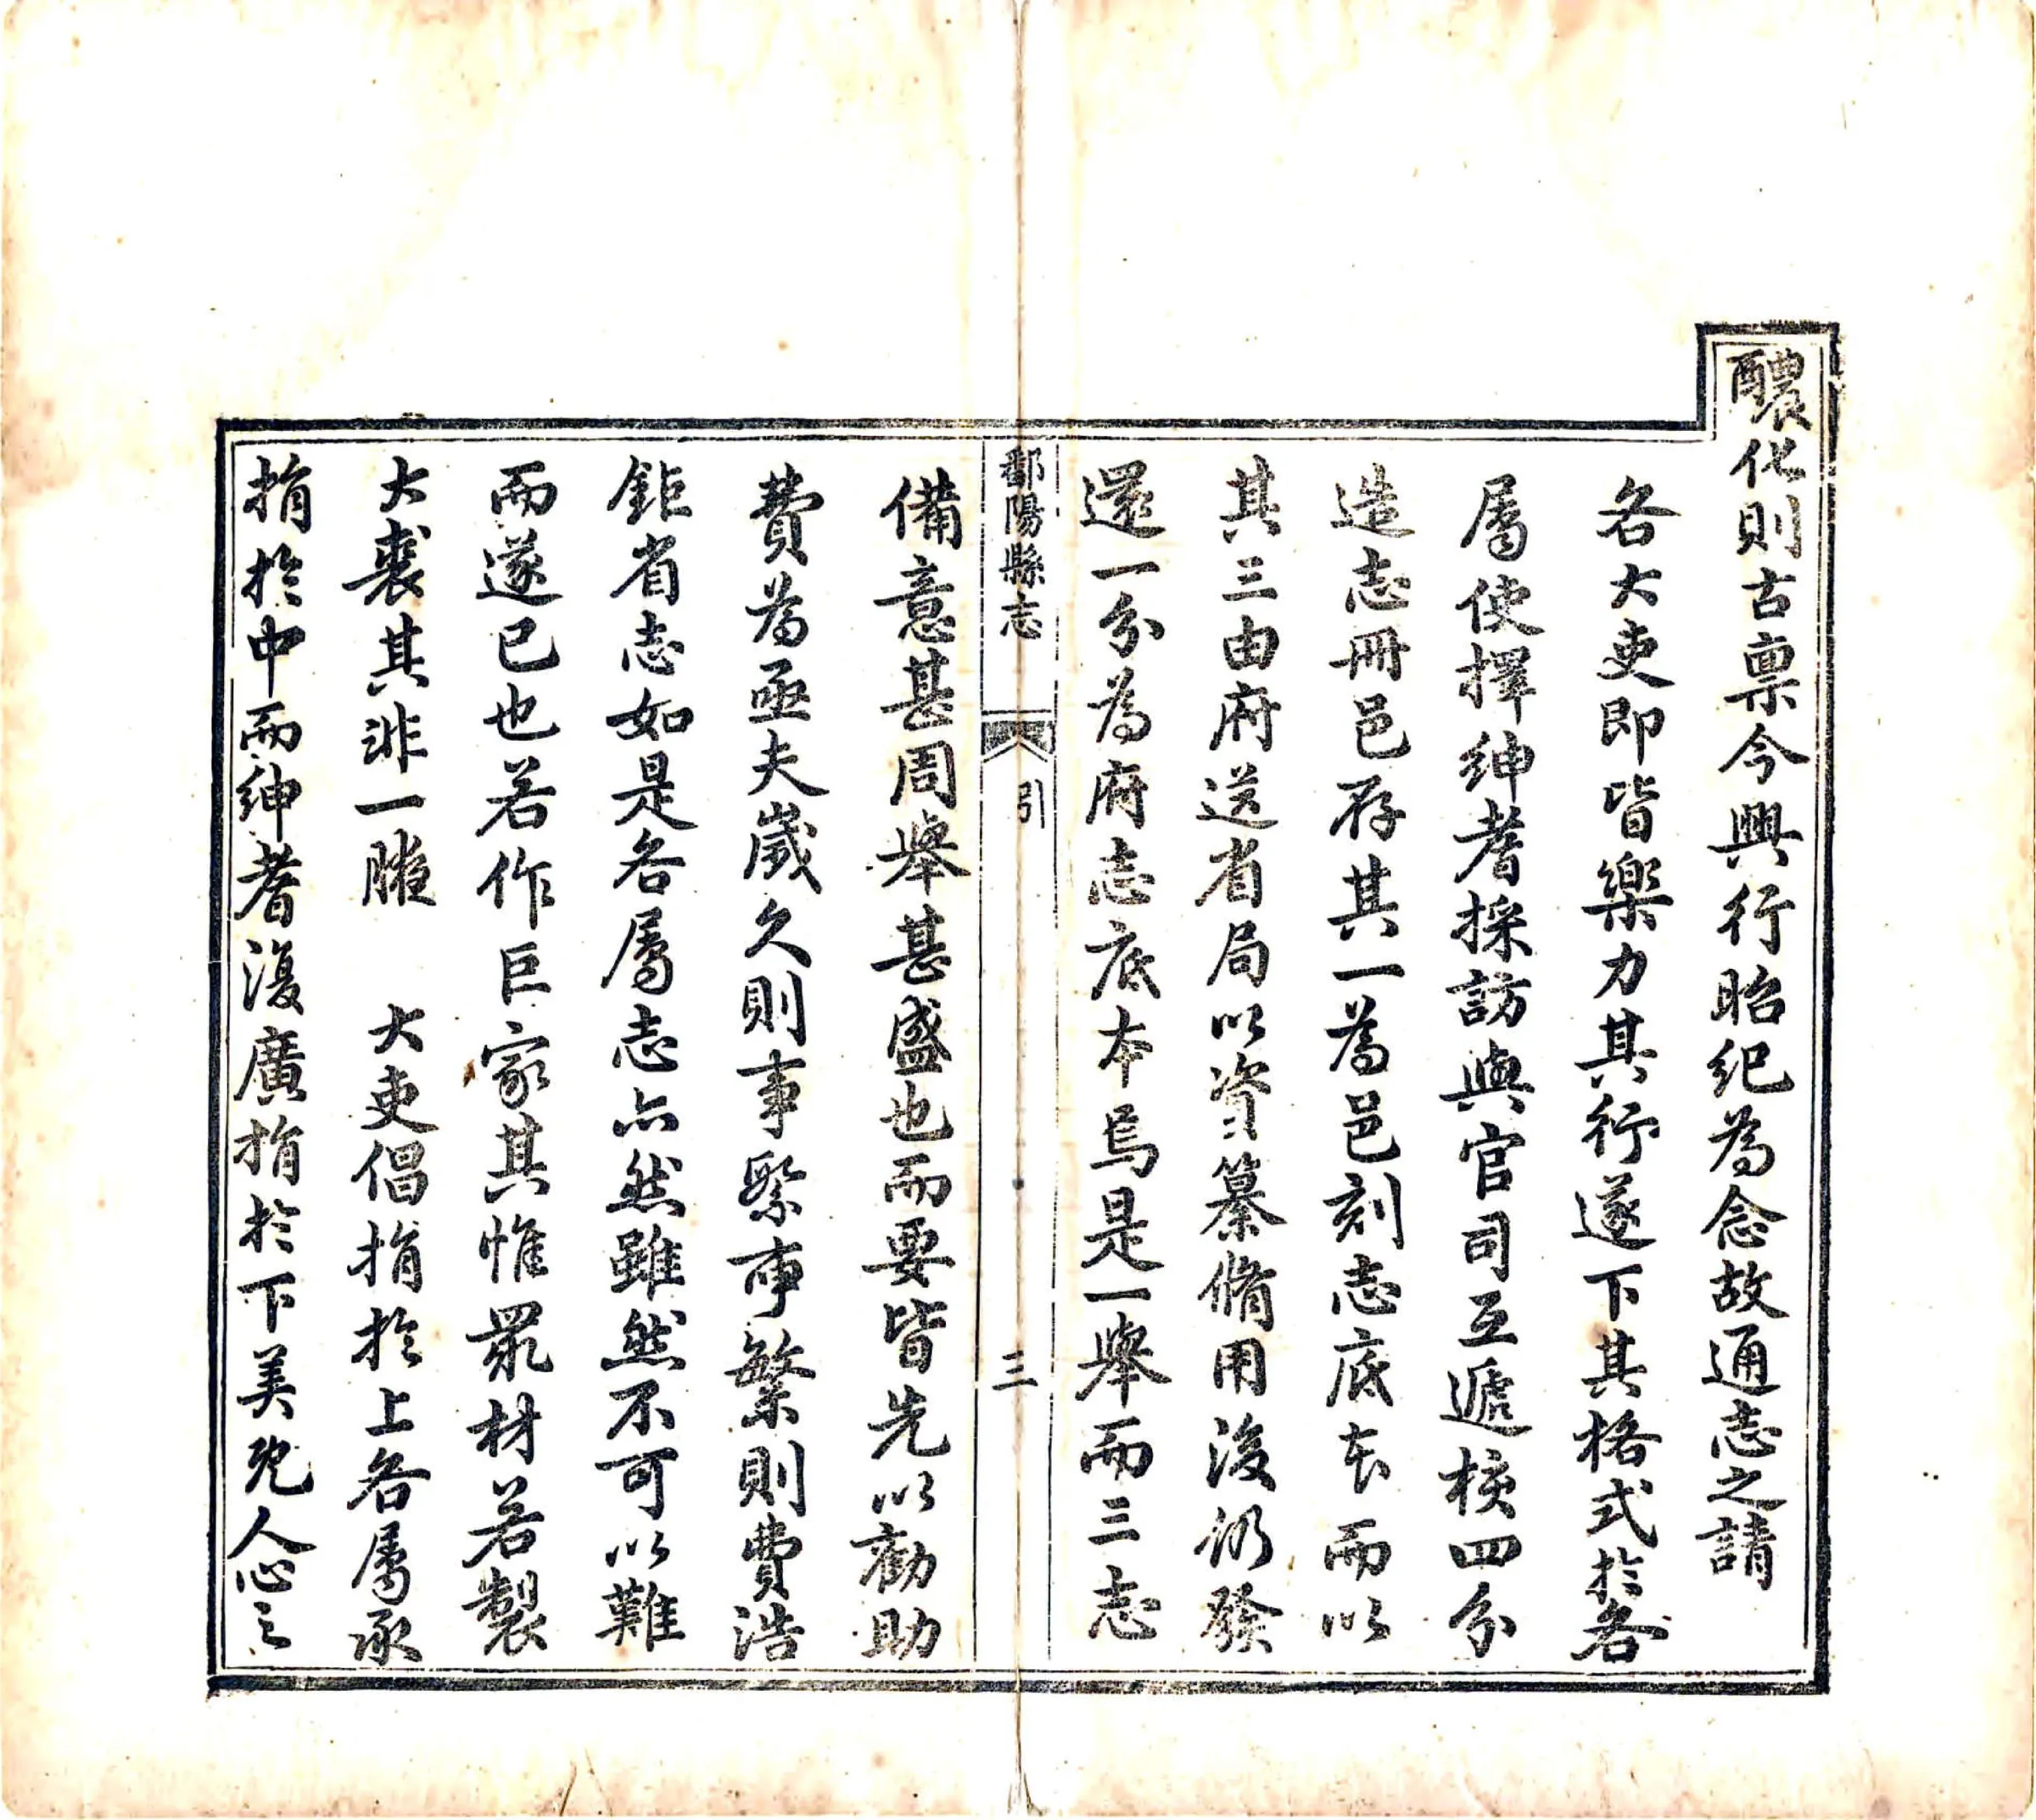 醲化則古禀今興行昭紀為念故通志之請
各大吏即皆樂力其行遂下其格式於各
屬使擇紳耆採訪與官司互遞核四分
造志冊邑存其一為邑刻志底本而以
其三由府送省局以資纂脩用後仍發
還一分為府志底本焉是一舉而三志
鄱陽縣志 引 三
備意甚周舉甚盛也而要皆先以勸助
費為亟夫歲久則事緊事繁則費浩
鉅省志如是各屬志亦然雖然不可以難
而遂已也若作巨家其惟眾材若製
大裘其非一腋 大吏倡捐於上各屬承
捐於中而紳耆復廣捐於下美矣人心之